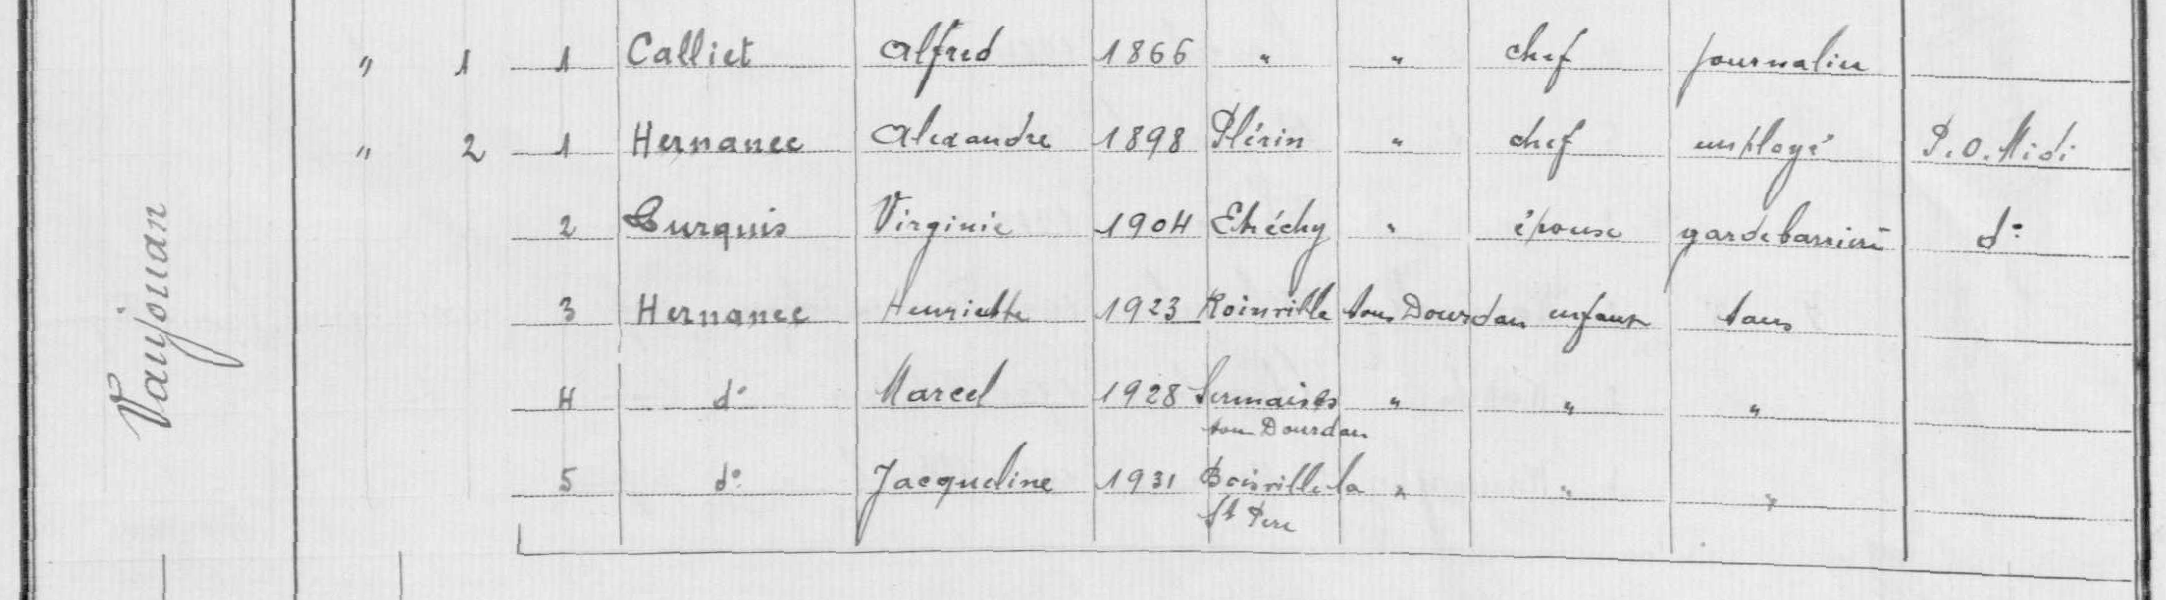 Vaujouan
" 1 1 Calliet Alfred 1866 " " chef journalier
" 2 1 Hernanec Alexandre 1898 Plérin " chef employé P.O. Midi
2 Curquis Virginie 1904 Etréchy " épouse garde barrière d°
3 Hernanec Henriette 1923 Roinville sous Dourdan enfant sans
4 d° Marcel 1928 Sermaises " " "
sous Dourdan
5 d° Jacqueline 1931 Boinville la " " "
St Père